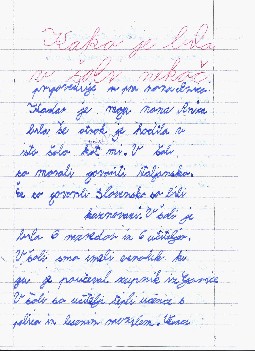 Kako je bila
v šoli nekoč
pripoveduje nona Anica
Kadar je moja nona Anica
bila še otrok je hodila v
isto šolo kot mi. V šoli
so morali govoriti italijansko.
Če so govorili slovensko so bili
kaznovani. V šoli je
bila 5 razredov in 6 učiteljev.
V šoli smo imeli verouk ki
ga je poučeval župnik iz
V šoli so učitelji tepli učence s
palico in lesenim ravnilom.